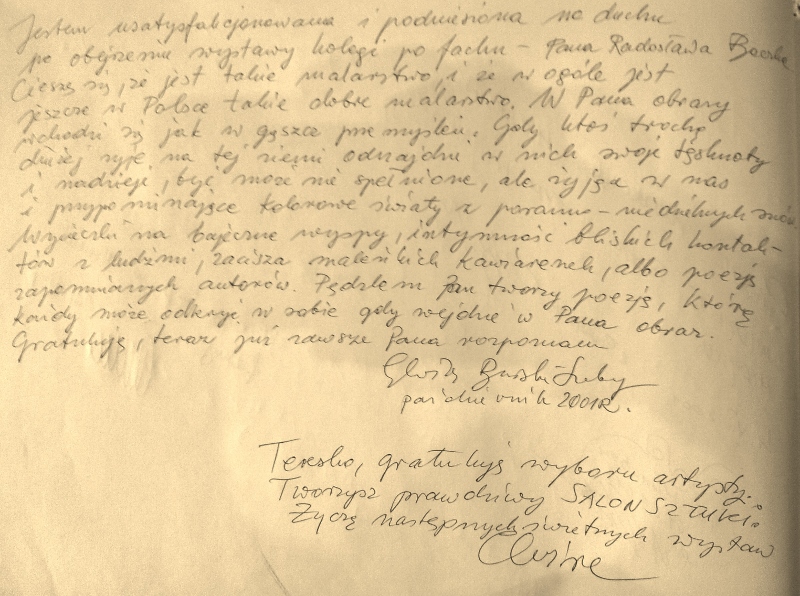 Jestem usatysfakcjonowana i podniesiona na duchu
po obejrzeniu wystawy kolegi po fachu – Pana Radosława
Cieszę się, że jest takie malarstwo, i że w ogóle jest
jeszcze w Polsce takie dobre malarstwo. W Pana obrazy
wchodzi się jak w gąszcz przemyśleń. Gdy ktoś trochę
dłużej żyje na tej ziemi odnajdzie w nich swoje tęsknoty
i nadzieje, być może nie spełnione, ale żyjące w nas
i przypominające kolorowe światy z poranno-niedzielnych snów
Wycieczki na bajeczne wyspy, intymność bliskich kontak-
tów z ludźmi, zacisza maleńkich kawiarenek, albo poezję
zapomnianych autorów. Pędzlem Pan tworzy poezję, którą
każdy może odkryć w sobie gdy wejdzie w Pana obraz.
Gratuluję, teraz już zawsze Pana rozpoznam
październik 2001R.
Teresko, gratuluję wyboru artysty.
Tworzysz prawdziwy SALON SZTUKI.
Życzę następnych świetnych wystaw